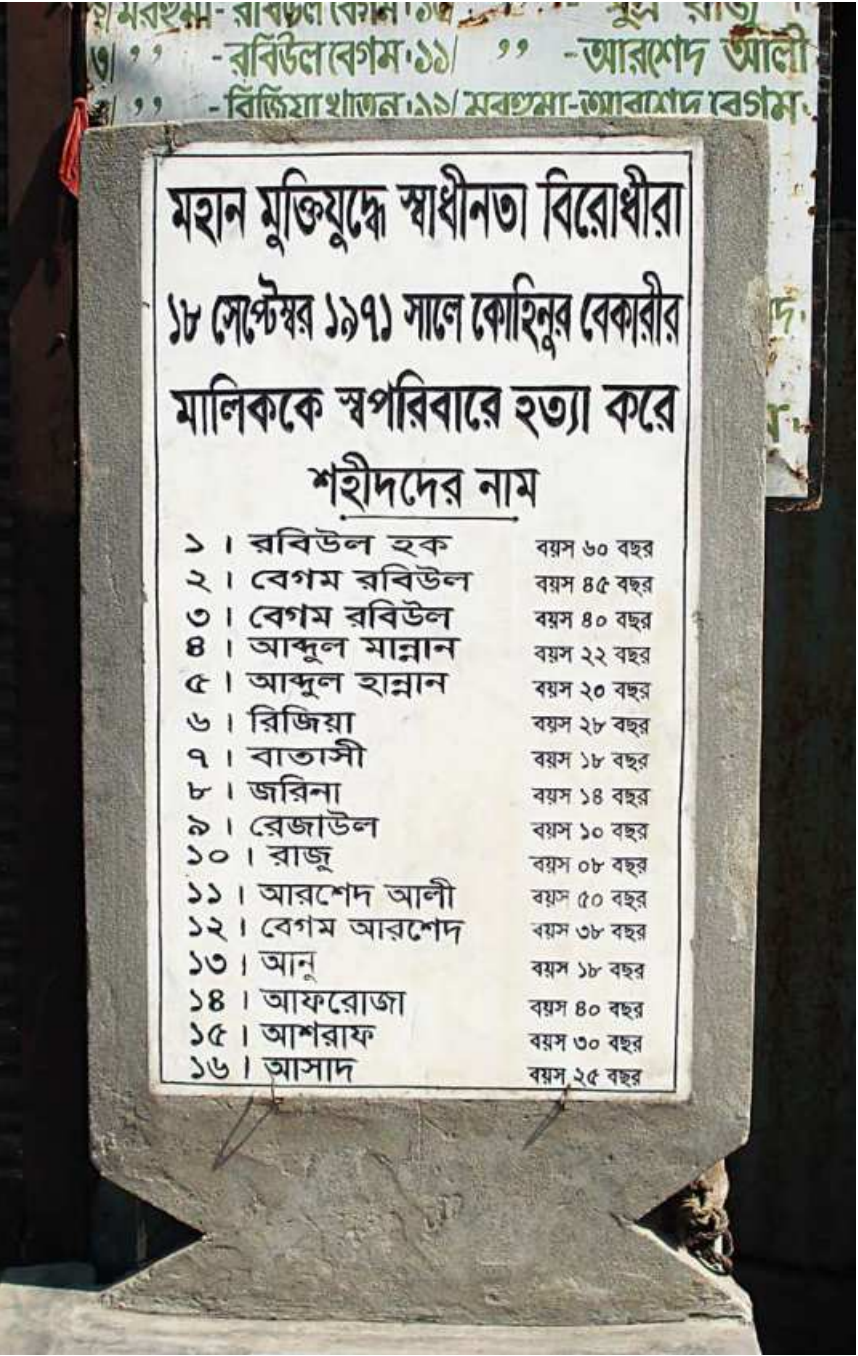 ৩। ,, - রবিউল বেগম। ১১। ,, - আরশেদ আলী
,, - রিজিয়া খাতুন। ১২। মরহুমা - আরশেদ বেগম
মহান মুক্তিযুদ্ধে স্বাধীনতা বিরোধীরা
১৮ সেপ্টেম্বর ১৯৭১ সালে কোহিনুর বেকারীর
মালিককে স্বপরিবারে হত্যা করে
শহীদদের নাম
১ । রবিউল হক বয়স ৬০ বছর
২ । বেগম রবিউল বয়স ৪৫ বছর
৩ । বেগম রবিউল বয়স ৪০ বছর
৪ । আব্দুল মান্নান বয়স ২২ বছর
৫ । আব্দুল হান্নান বয়স ২০ বছর
৬ । রিজিয়া বয়স ২৮ বছর
৭ । বাতাসী বয়স ১৮ বছর
৮ । জরিনা বয়স ১৪ বছর
৯ । রেজাউল বয়স ১০ বছর
১০ । রাজু বয়স ০৮ বছর
১১ । আরশেদ আলী বয়স ৫০ বছর
১২ । বেগম আরশেদ বয়স ৩৮ বছর
১৩ । আনু বয়স ১৮ বছর
১৪ । আফরোজা বয়স ৪০ বছর
১৫ । আশরাফ বয়স ৩০ বছর
১৬ । আসাদ বয়স ২৫ বছর